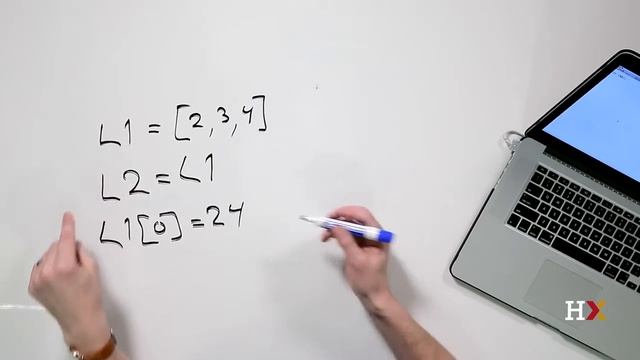 L1 = [2,3,4]
L2 = L1
L1[0] = 24
HX